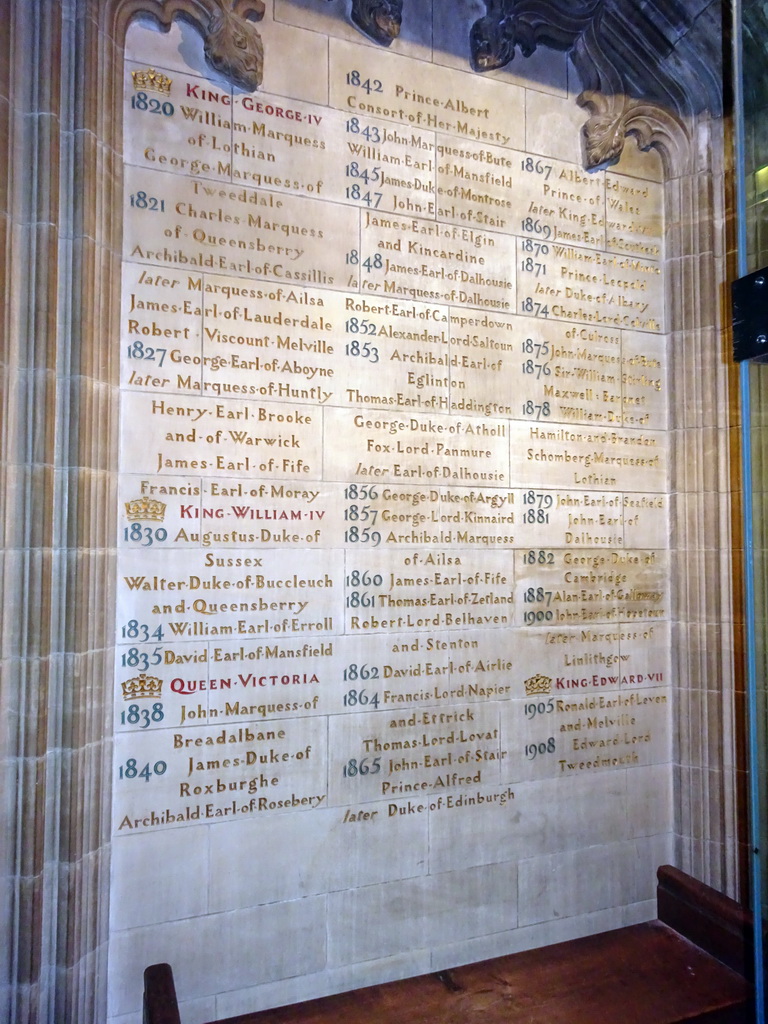 KING·GEORGE·IV
1820 William·Marquess
of·Lothian
George·Marquess·of
Tweeddale
1821 Charles·Marquess
of·Queensberry
Archibald·Earl·of·Cassillis
later Marquess·of·Ailsa
James·Earl·of·Lauderdale
Robert·Viscount·Melville
1827 George·Earl·of·Aboyne
later Marquess·of·Huntly
Henry·Earl·Brooke
and·of·Warwick
James·Earl·of·Fife
Francis·Earl·of·Moray
KING·WILLIAM·IV
1830 Augustus·Duke·of
Sussex
Walter·Duke·of·Buccleuch
and·Queensberry
1834 William·Earl·of·Erroll
1835 David·Earl·of·Mansfield
QUEEN·VICTORIA
1838 John·Marquess·of
Breadalbane
1840 James·Duke·of
Roxburghe
Archibald·Earl·of·Rosebery
1842 Prince·Albert
Consort·of·Her·Majesty
1843 John·Marquess·of·Bute
William·Earl·of·Mansfield
1845 James·Duke·of·Montrose
1847 John·Earl·of·Stair
James·Earl·of·Elgin
and Kincardine
1848 James·Earl·of·Dalhousie
later Marquess·of·Dalhousie
Robert·Earl·of·Camperdown
1852 Alexander·Lord·Saltoun
1853 Archibald·Earl·of
Eglinton
Thomas·Earl·of·Haddington
George·Duke·of·Atholl
Fox·Lord·Panmure
later Earl·of·Dalhousie
1856 George·Duke·of·Argyll
1857 George·Lord·Kinnaird
1859 Archibald·Marquess
of·Ailsa
1860 James·Earl·of·Fife
1861 Thomas·Earl·of·Zetland
Robert·Lord·Belhaven
and·Stenton
1862 David·Earl·of·Airlie
1864 Francis·Lord·Napier
and·Ettrick
Thomas·Lord·Lovat
1865 John·Earl·of·Stair
Prince·Alfred
later Duke·of·Edinburgh
1867 Albert·Edward
Prince·of·Wales
later King·Edward
1869 James·Earl·of
1870 William·Earl·of
1871 Prince·Leopold
later Duke·of·Albany
1874 Charles·Lord·Colville
of·Culross
1875 John·Marquess·of·Bute
1876 Sir·William·Stirling
Maxwell·Baronet
1878 William·Duke·of
Hamilton·and·Brandon
Schomberg·Marquess·of
Lothian
1879 John·Earl·of·Seafield
1881 John·Earl·of
Dalhousie
1882 George·Duke·of
Cambridge
1887 Alan·Earl·of·Galloway
1900 John·Earl·of·Hopetoun
later Marquess·of
Linlithgow
KING·EDWARD·VII
1905 Ronald·Earl·of·Leven
and·Melville
1908 Edward·Lord
Tweedmouth